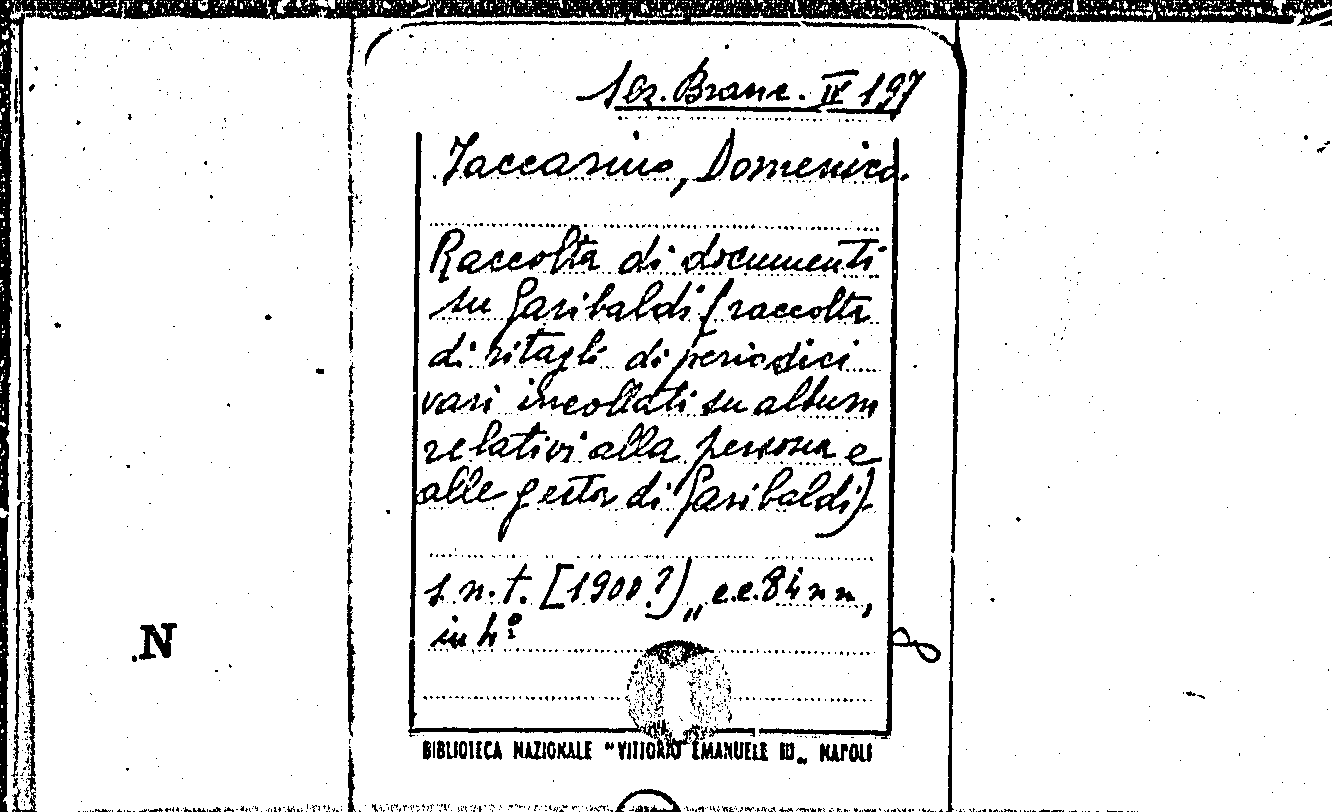 Sez. Branc. IV 197
Jaccarino, Domenico.
Raccolta di documenti
su Garibaldi (raccolta
di ritagli di periodici
vari incollati su album
relativi alla persona e
alle gesta di Garibaldi).
s.n.t. [1900?) „ c.c.84 nn,
in 4º
N
8
BIBLIOTECA NAZIONALE "VITTORIO EMANUELE III„ NAPOLI